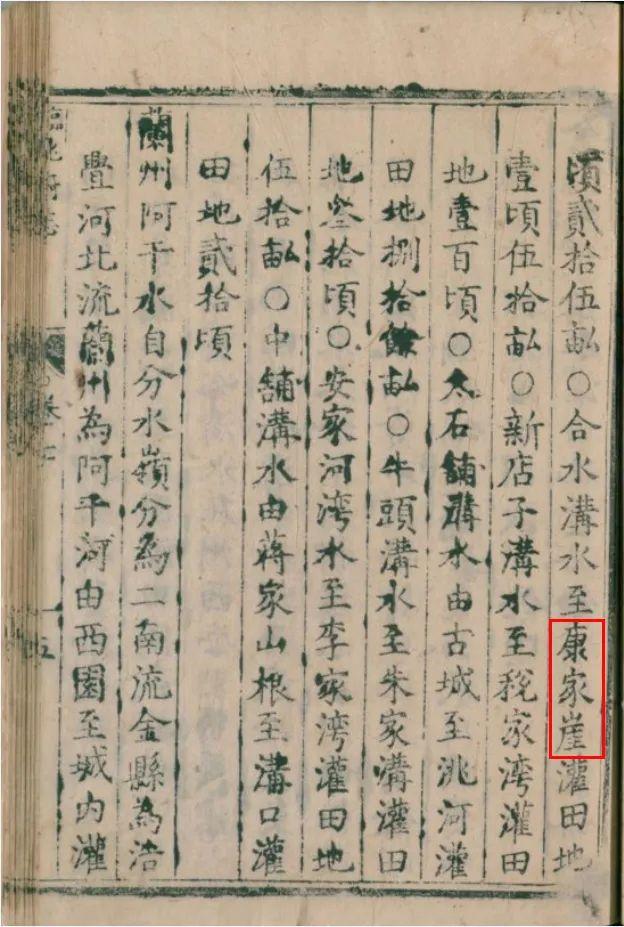 頃貳拾伍畝○合水溝水至康家崖灌田地
壹頃伍拾畝○新店子溝水至税家湾灌田
地壹百頃○太石舖溝水由古城至洮河灌
田地捌拾餘畝○牛頭溝水至朱家溝灌田
地叄拾頃○安家河湾水至李家湾灌田地
伍拾畝○中舖溝水由蒋家山根至溝口灌
田地貳拾頃
蘭州阿干水自分水嶺分為二南流金縣為浩
疊河北流蘭州為阿干河由西園至城内灌
臨洮府志